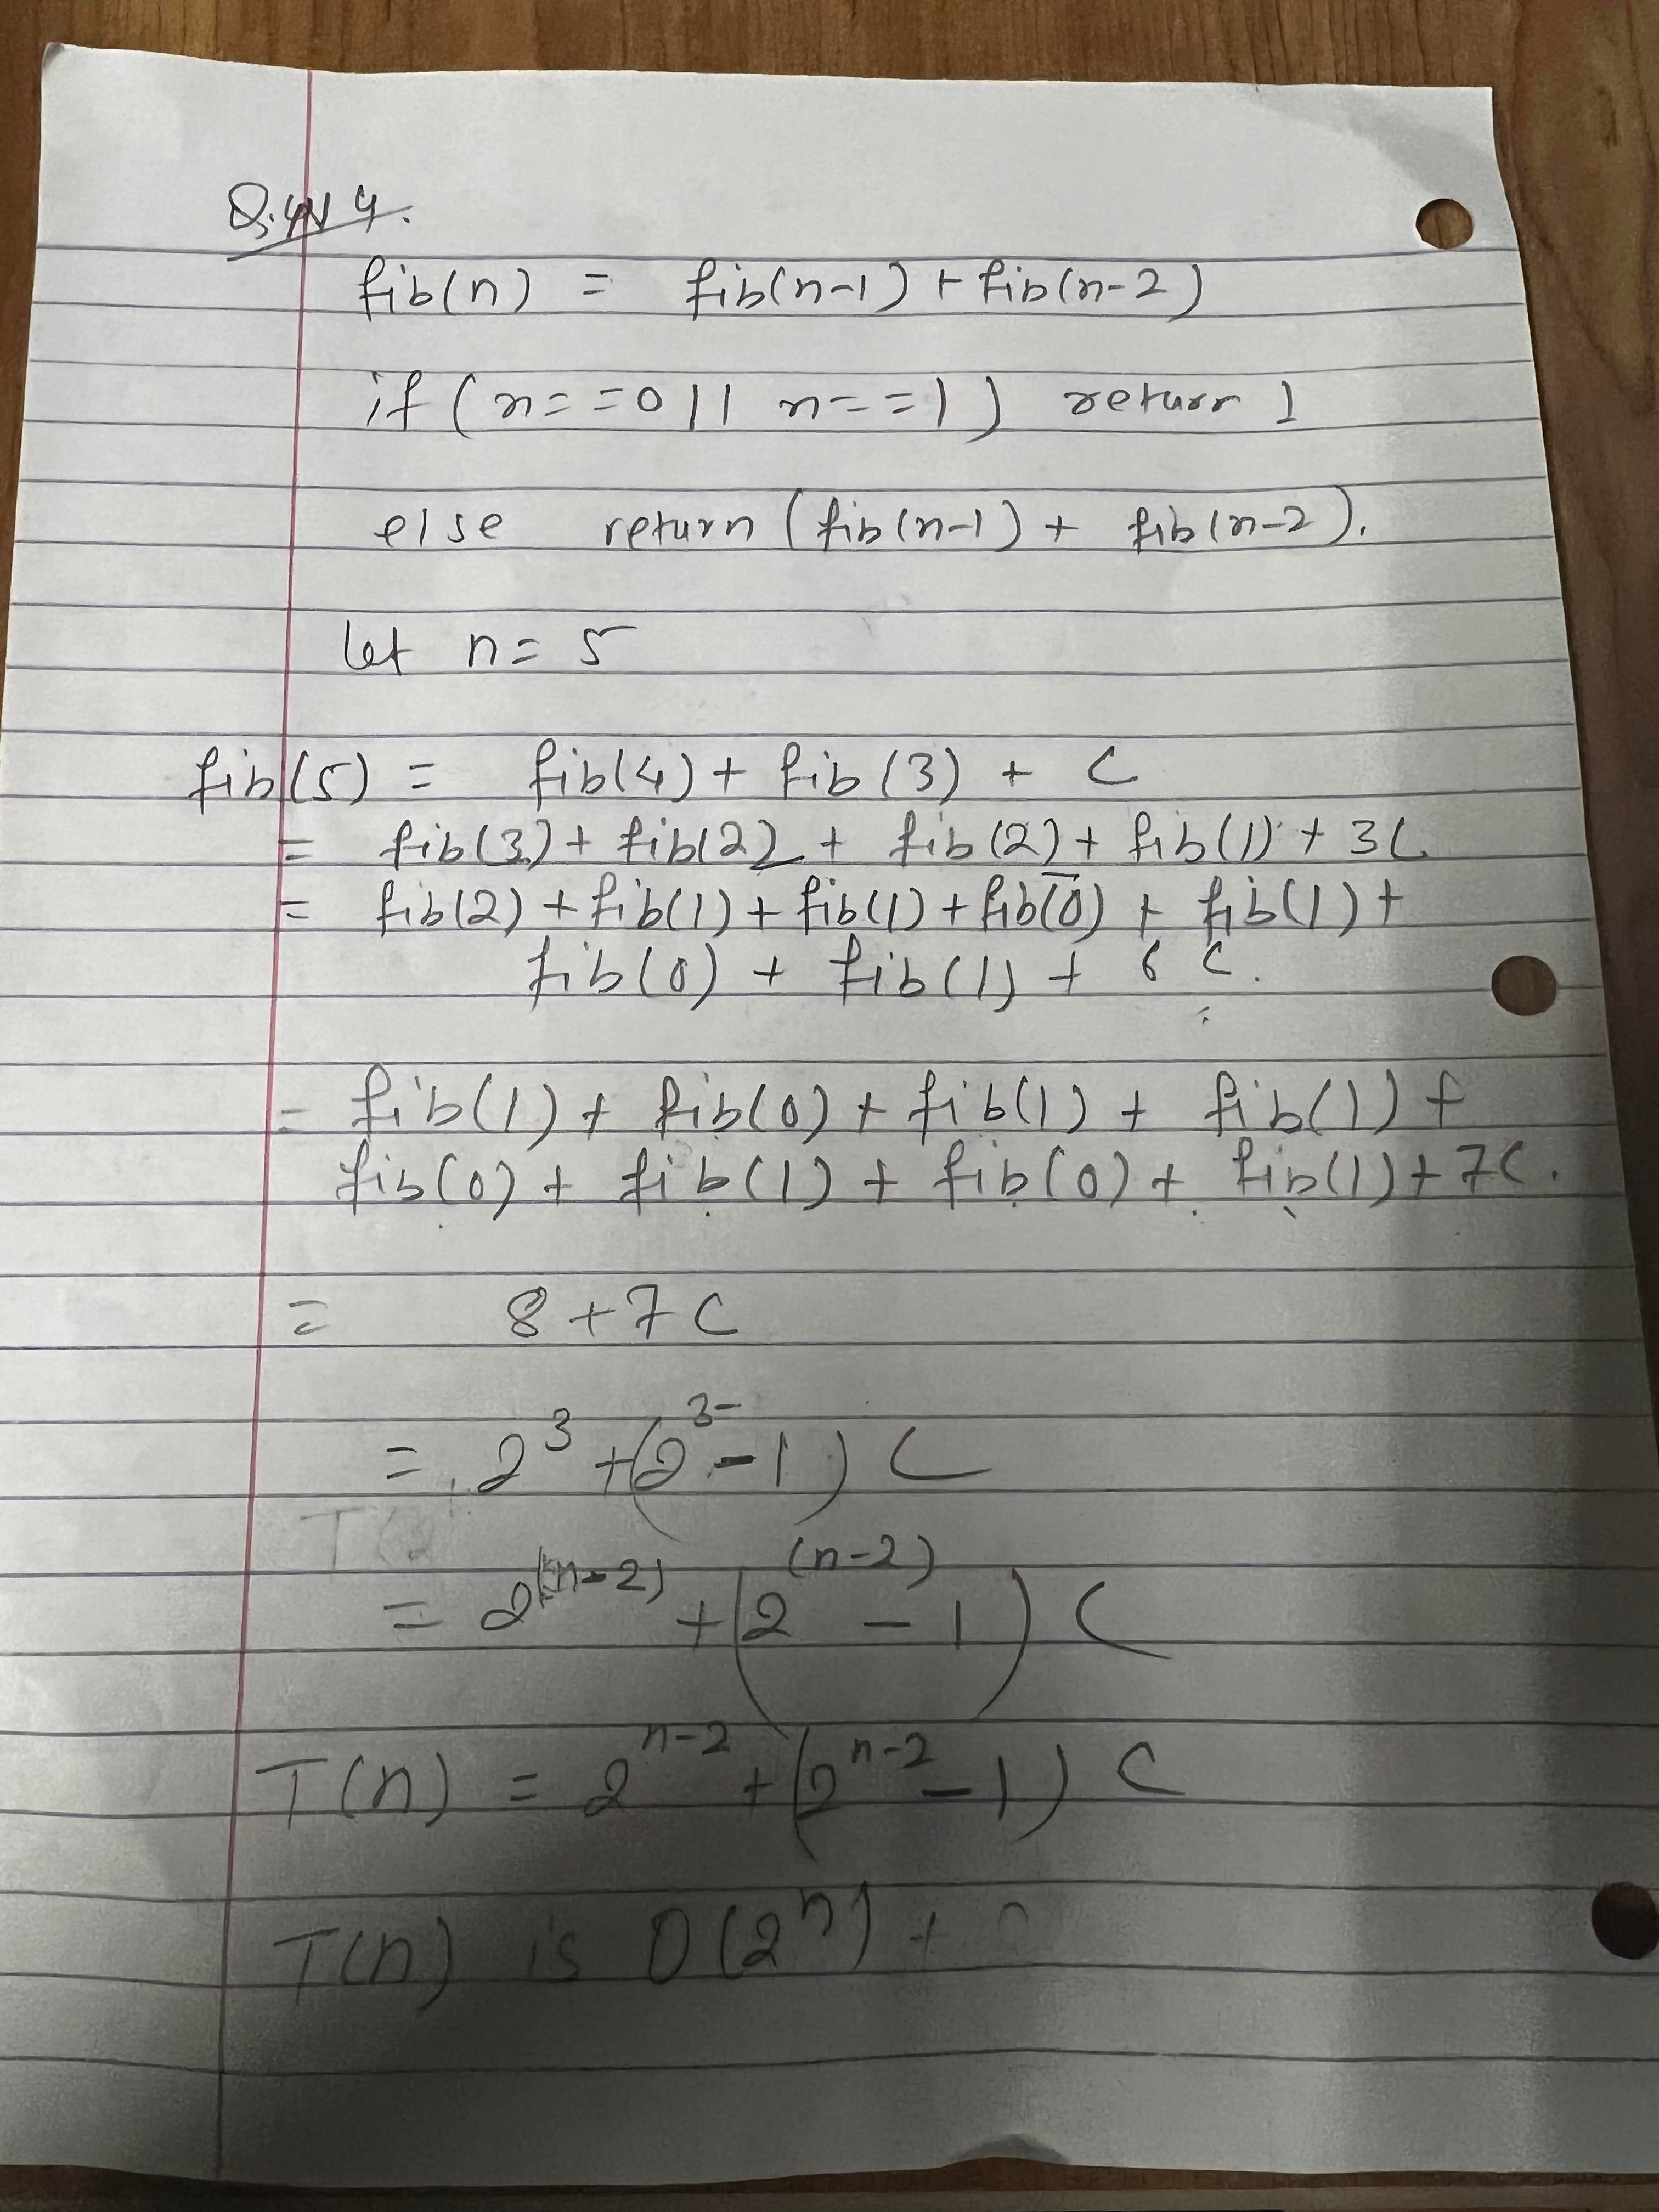 Q.N 4.
fib(n) = fib(n-1) + fib(n-2)
if (n==0 || n==1) return 1
else return (fib(n-1) + fib(n-2).
let n = 5
fib(5) = fib(4) + fib(3) + C
= fib(3) + fib(2) + fib(2) + fib(1) + 3C
= fib(2) + fib(1) + fib(1) + fib(0) + fib(1) +
fib(0) + fib(1) + 6 C.
= fib(1) + fib(0) + fib(1) + fib(1) +
fib(0) + fib(1) + fib(0) + fib(1) + 7C.
= 8 + 7C
= 2^3 + (2^3 - 1) C
= 2^(n-2) + (2^(n-2) - 1) C
T(n) = 2^n-2 + (2^n-2 - 1) C
T(n) is O(2^n) +